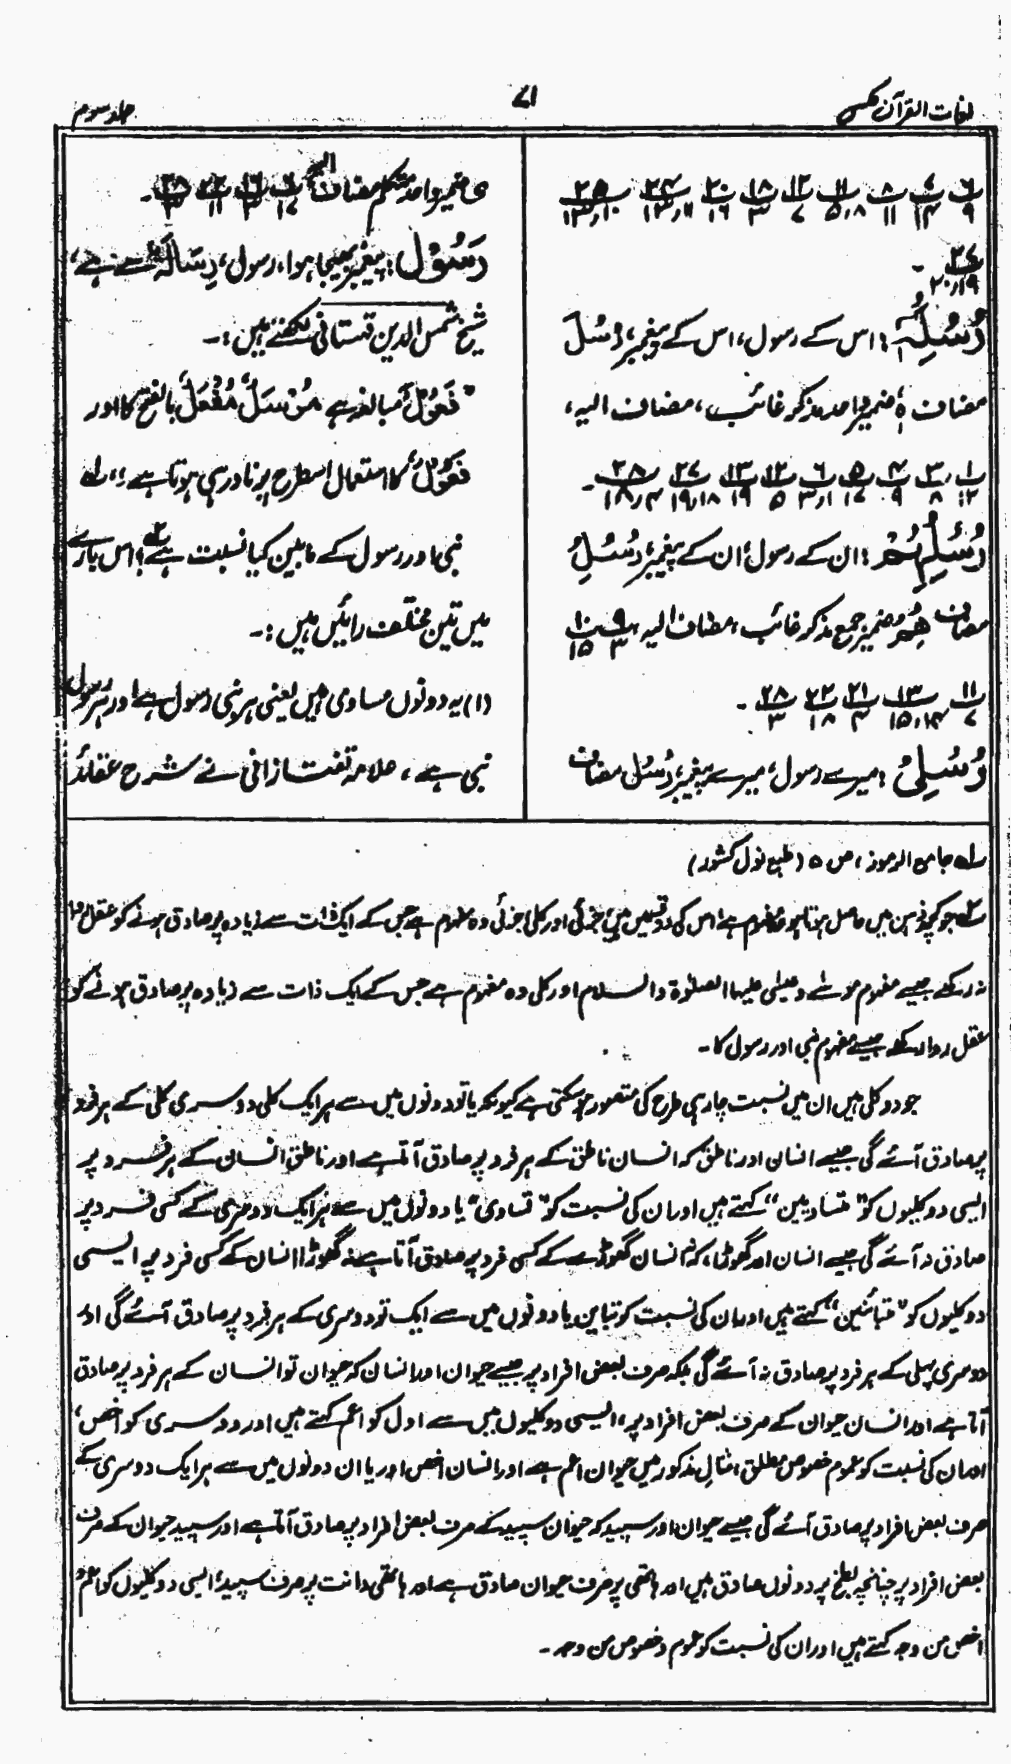 لغات القرآن مکمل
۷۱
جلد سوم
پ۶/۹ پ۷/۱۴ پ۸/۱۱ پ۱۱/۵،۸ پ۱۲/۷ پ۱۸/۳ پ۲۰/۱۶
پ۲۷/۱۹،۲۰ ۔
رُسُلِہٖ : اس کے رسول، اس کے پیغمبر، رُسُل
مضاف ہٖ ضمیر واحد مذکر غائب، مضاف الیہ،
پ۱/۱۲ پ۳/۸ پ۴/۹ پ۵/۱۷ پ۶/۱،۳ پ۱۲/۵ پ۱۳/۱۹ پ۲۷/۱۸،۱۹ پ۲۸/۴،۱۸ ۔
رُسُلُہُمْ : ان کے رسول، ان کے پیغمبر، رُسُلُ
مضاف ہُمْ ضمیر جمع مذکر غائب، مضاف الیہ، پ۹/۳ پ۱۰/۱۵
پ۱۱/۷ پ۱۳/۱۴،۱۵ پ۲۱/۴ پ۲۲/۱۸ پ۲۸/۳ ۔
رُسُلِیْ : میرے رسول، میرے پیغمبر، رُسُل مضاف
ی ضمیر واحد متکلم مضاف الیہ، پ۶/۱۷ پ۱۶/۳ پ۲۲/۱۱ پ۲۸/۳ ۔
رَسُوْل : پیغمبر، بھیجا ہوا، رسول، رِسَالَۃٌ سے ہے،
شیخ شمس الدین قہستانی لکھتے ہیں :۔
” فَعُوْلٌ مبالغہ ہے مُرْسَلٌ مُفْعَلٌ بالفتح کا اور
فَعُوْلٌ کا استعمال اسطرح پر نادر ہی ہوتا ہے ،، لہ
نبی اور رسول کے مابین کیا نسبت ہے؟ اس بارے
میں تین مختلف رائیں ہیں :۔
(۱) یہ دونوں مساوی ہیں یعنی ہر نبی رسول ہے اور ہر رسول
نبی ہے ، علامہ تفتازانی نے شرح عقائد
لہ جامع الرموز ، ص ۵ (طبع نول کشور)
لہ جو کچھ ذہن میں حاصل ہوتا ہو وہ مفہوم ہے اس کی دو قسمیں ہیں، جزئی اور کلی، جزئی وہ مفہوم ہے جس کے ایک ذات سے زیادہ پر صادق ہونے کو عقل روا
نہ رکھے جیسے مفہوم موسیٰ و عیسیٰ علیہما الصلوٰۃ والسلام اور کلی وہ مفہوم ہے جس کے ایک ذات سے زیادہ پر صادق ہونے کو
عقل روا رکھے جیسے مفہوم نبی اور رسول کا۔
جو دو کلی ہیں ان میں نسبت چار ہی طرح کی متصور ہو سکتی ہے کیونکہ یا تو دونوں میں سے ہر ایک کلی دوسری کلی کے ہر فرد
پر صادق آئے گی جیسے انسان اور ناطق کہ انسان ناطق کے ہر فرد پر صادق آتا ہے اور ناطق انسان کے ہر فرد پر
ایسی دو کلیوں کو ”متساویین“ کہتے ہیں اور ان کی نسبت کو ”تساوی“ یا دونوں میں سے ہر ایک دوسری کے کسی فرد پر
صادق نہ آئے گی جیسے انسان اور گھوڑا، کہ انسان گھوڑے کے کسی فرد پر صادق آتا ہے نہ گھوڑا انسان کے کسی فرد پر ایسی
دو کلیوں کو ”متبائنین“ کہتے ہیں اور ان کی نسبت کو تباین یا دونوں میں سے ایک تو دوسری کے ہر فرد پر صادق آئے گی اور
دوسری پہلی کے ہر فرد پر صادق نہ آئے گی بلکہ صرف بعض افراد پر جیسے حیوان اور انسان کہ حیوان تو انسان کے ہر فرد پر صادق
آتا ہے اور انسان حیوان کے صرف بعض افراد پر، ایسی دو کلیوں میں سے اول کو اعم کہتے ہیں اور دوسری کو اخص،
اور ان کی نسبت کو عموم خصوص مطلق، مثال مذکور میں حیوان اعم ہے اور انسان اخص اور یا ان دونوں میں سے ہر ایک دوسری کے
صرف بعض افراد پر صادق آئے گی جیسے حیوان اور سپید کہ حیوان سپید کے صرف بعض افراد پر صادق آتا ہے اور سپید حیوان کے صرف
بعض افراد پر چنانچہ بطخ پر دونوں صادق ہیں اور ہاتھی پر صرف حیوان صادق ہے اور ہاتھی دانت پر صرف سپید، ایسی دو کلیوں کو اعم و
اخص من وجہ کہتے ہیں اور ان کی نسبت کو عموم و خصوص من وجہ۔